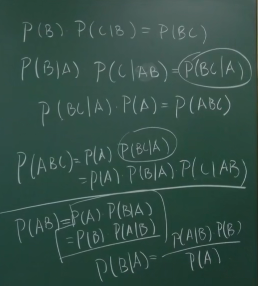 P(B) P(C|B) = P(BC)
P(B|A) P(C|AB) = P(BC|A)
P(BC|A) · P(A) = P(ABC)
P(ABC) = P(A) P(BC|A)
= P(A) · P(B|A) P(C|AB)
P(AB) = P(A) · P(B|A)
= P(B) P(A|B)
P(B|A) = P(A|B) P(B) / P(A)